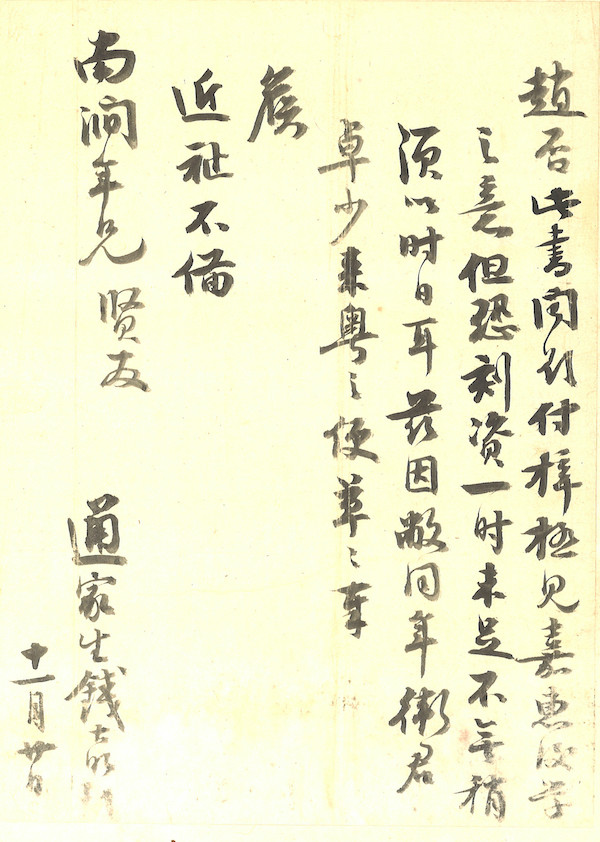 趙否此書聞付梓極見嘉惠後学
之意但恐刻资一时未足不無稍
須以时日耳茲因敝同年衛君
卓少来粤之便草々奉
候
近祉不備
南澗年兄 賢友
通家生錢大昕
十一月廿日